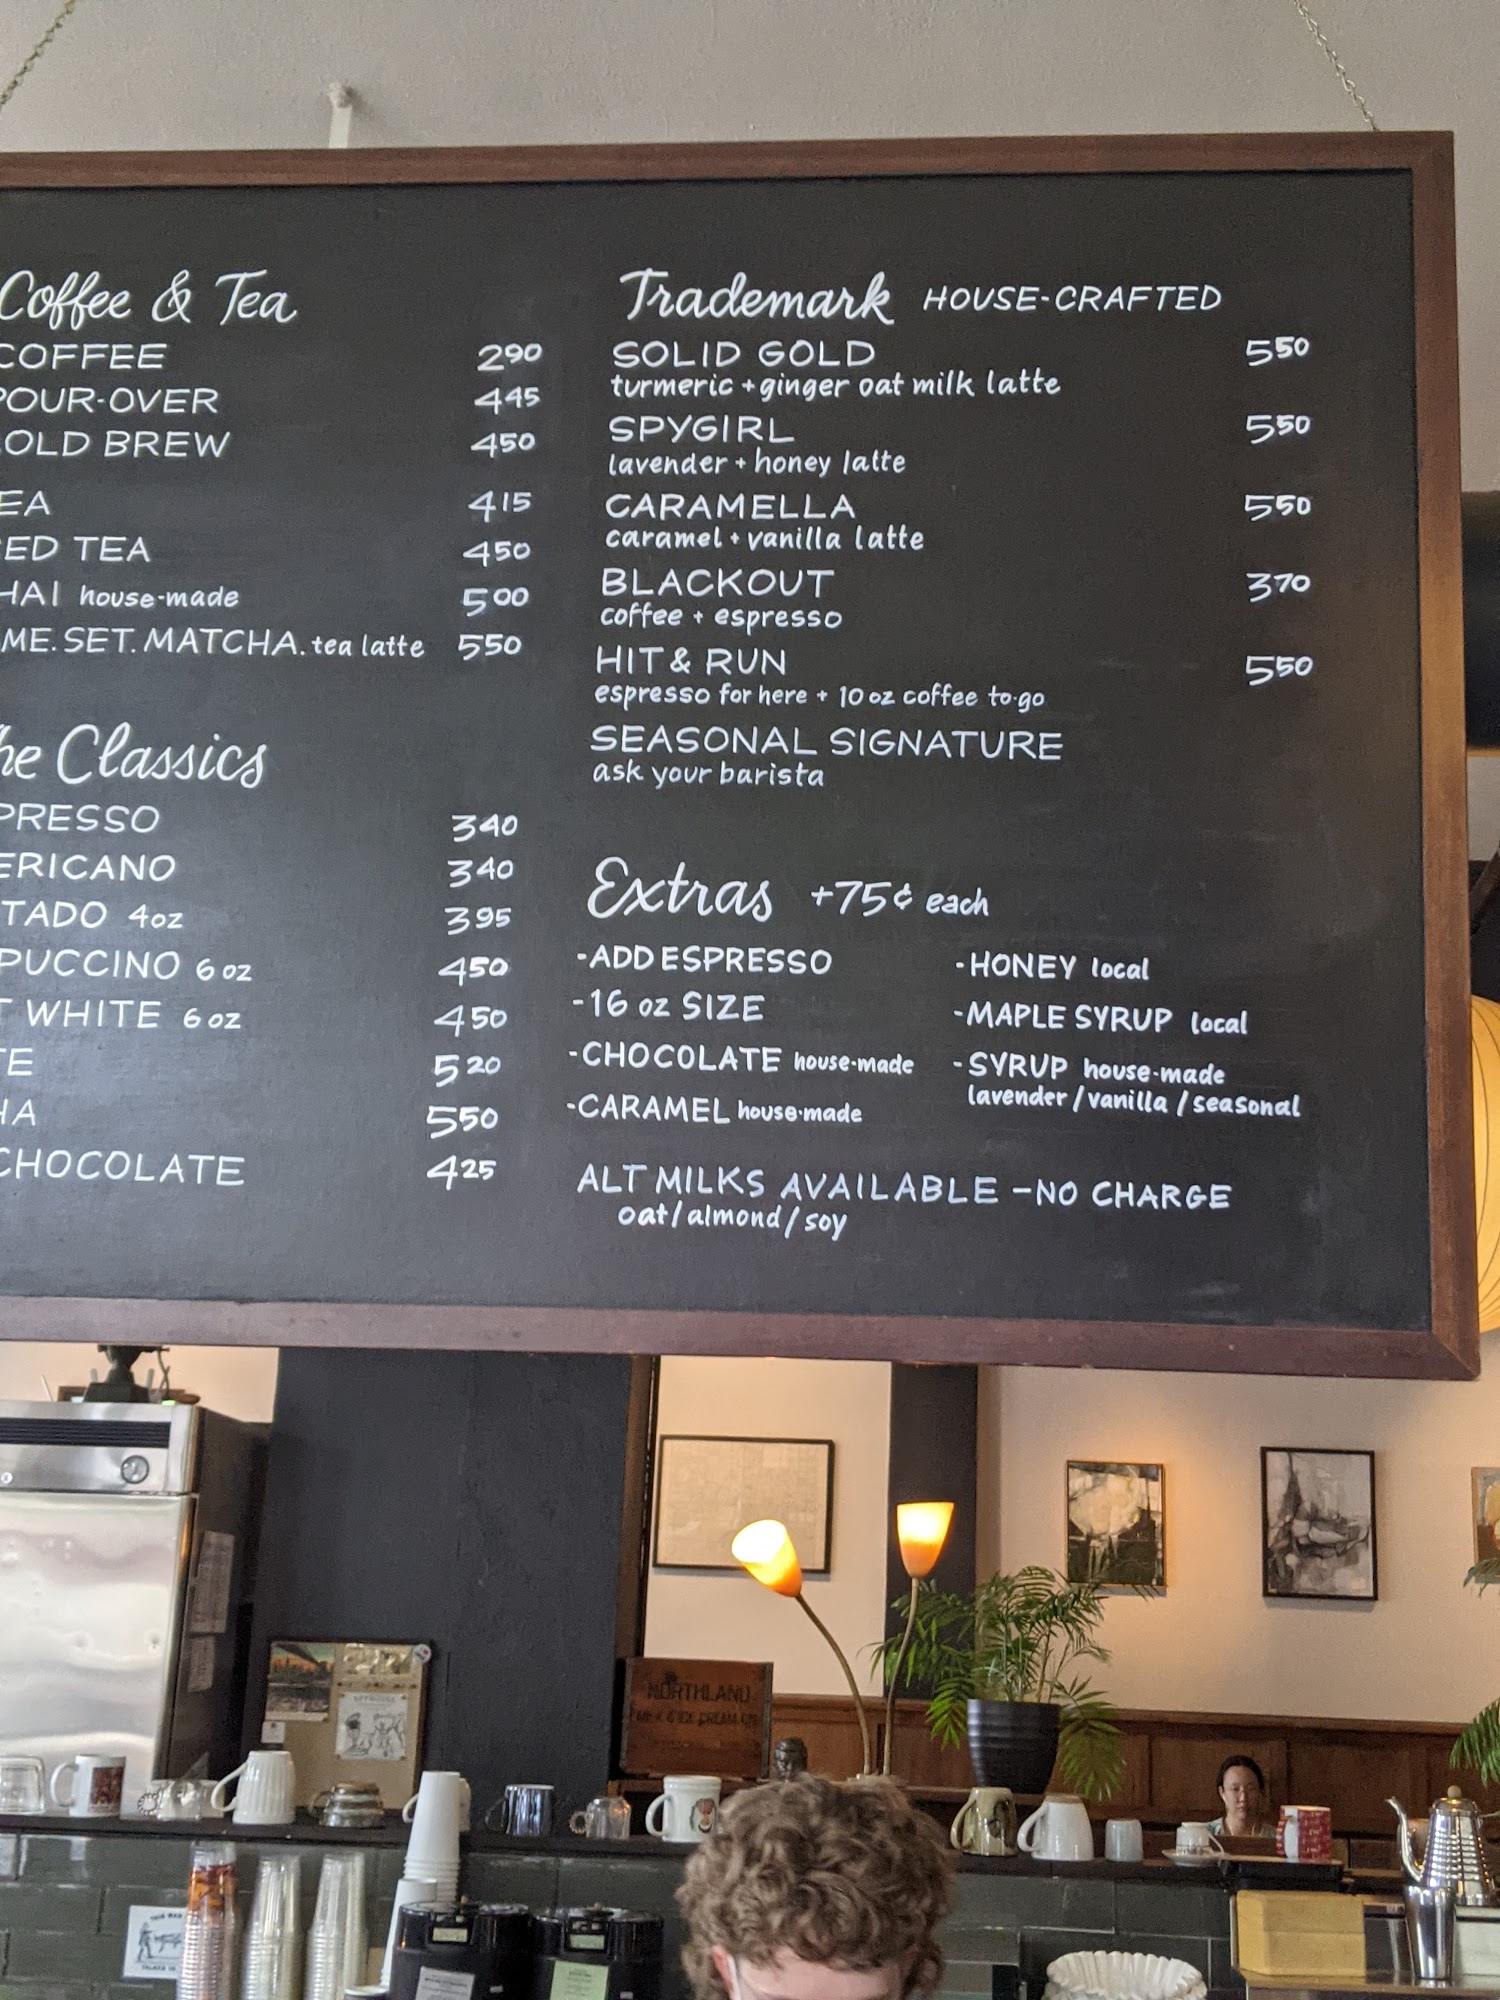 Coffee & Tea
COFFEE 2.90
POUR-OVER 4.45
OLD BREW 4.50
EA 4.15
ED TEA 4.50
HAI house-made 5.00
ME.SET.MATCHA. tea latte 5.50
he Classics
PRESSO 3.40
ERICANO 3.40
TADO 4oz 3.95
PUCCINO 6oz 4.50
T WHITE 6oz 4.50
TE 5.20
HA 5.50
CHOCOLATE 4.25
Trademark HOUSE-CRAFTED
SOLID GOLD 5.50
turmeric + ginger oat milk latte
SPYGIRL 5.50
lavender + honey latte
CARAMELLA 5.50
caramel + vanilla latte
BLACKOUT 3.70
coffee + espresso
HIT & RUN 5.50
espresso for here + 10 oz coffee to-go
SEASONAL SIGNATURE
ask your barista
Extras +75¢ each
-ADD ESPRESSO
-16 oz SIZE
-CHOCOLATE house-made
-CARAMEL house-made
-HONEY local
-MAPLE SYRUP local
-SYRUP house-made
lavender/vanilla/seasonal
ALT MILKS AVAILABLE -NO CHARGE
oat/almond/soy
NORTHLAND
MILK & ICE CREAM CO